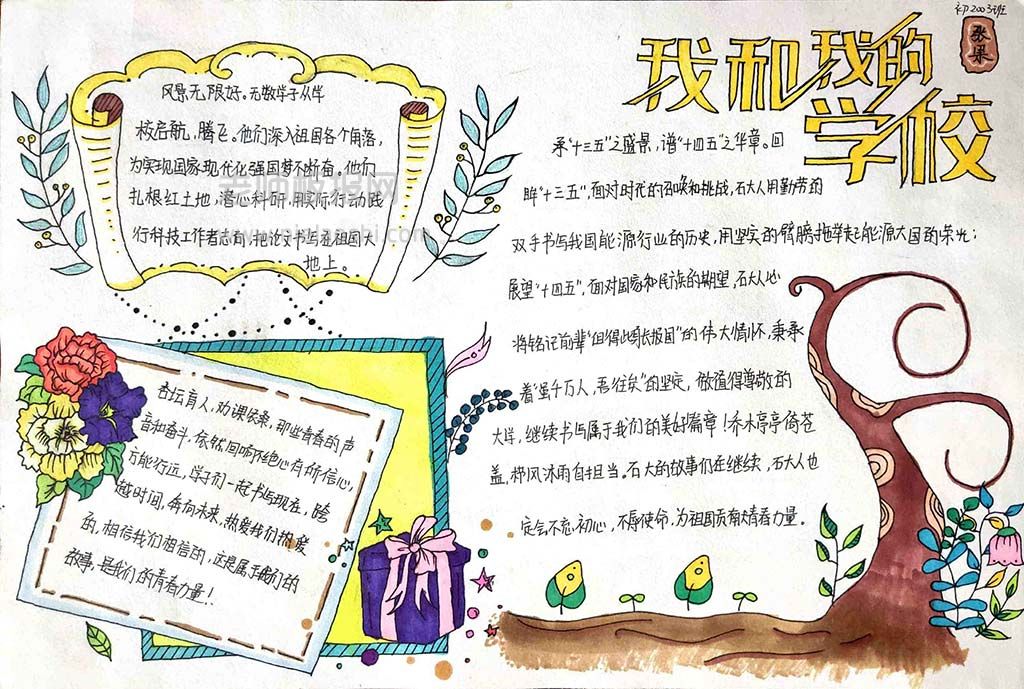 初2003班
张果
我和我的
学校
风景无限好。无数学子从母
校启航，腾飞。他们深入祖国各个角落，
为实现国家现代化强国梦不断奋。他们
扎根红土地，潜心科研用实际行动践
行科技工作者志向，把论文书写在祖国大
地上。
承“十三五”之盛景，谱“十四五”之华章。回
眸“十三五”，面对时代的召唤和挑战，石大人用勤劳的
双手书写我国能源行业的历史，用坚实的臂膀托举起能源大国的荣光；
展望“十四五”，面对国家和民族的期望，石大人必
将铭记前辈“但得此身长报国”的伟大情怀，秉承
着“虽千万人，吾往矣”的坚定，做值得尊敬的
大学，继续书写属于我们的美好篇章！乔木亭亭倚苍
盖，栉风沐雨自担当。石大的故事仍在继续，石大人也
定会不忘初心，不辱使命，为祖国贡献青春力量。
杏坛育人，劝课农桑，那些青春的声
音和奋斗，依然回响不绝心有所信心，
方能行远，学子们一起书写现在，跨
越时间，奔向未来，热爱我们热爱
的，相信我们相信的，这是属于我们的
故事，是我们的青春力量！
老师板报网